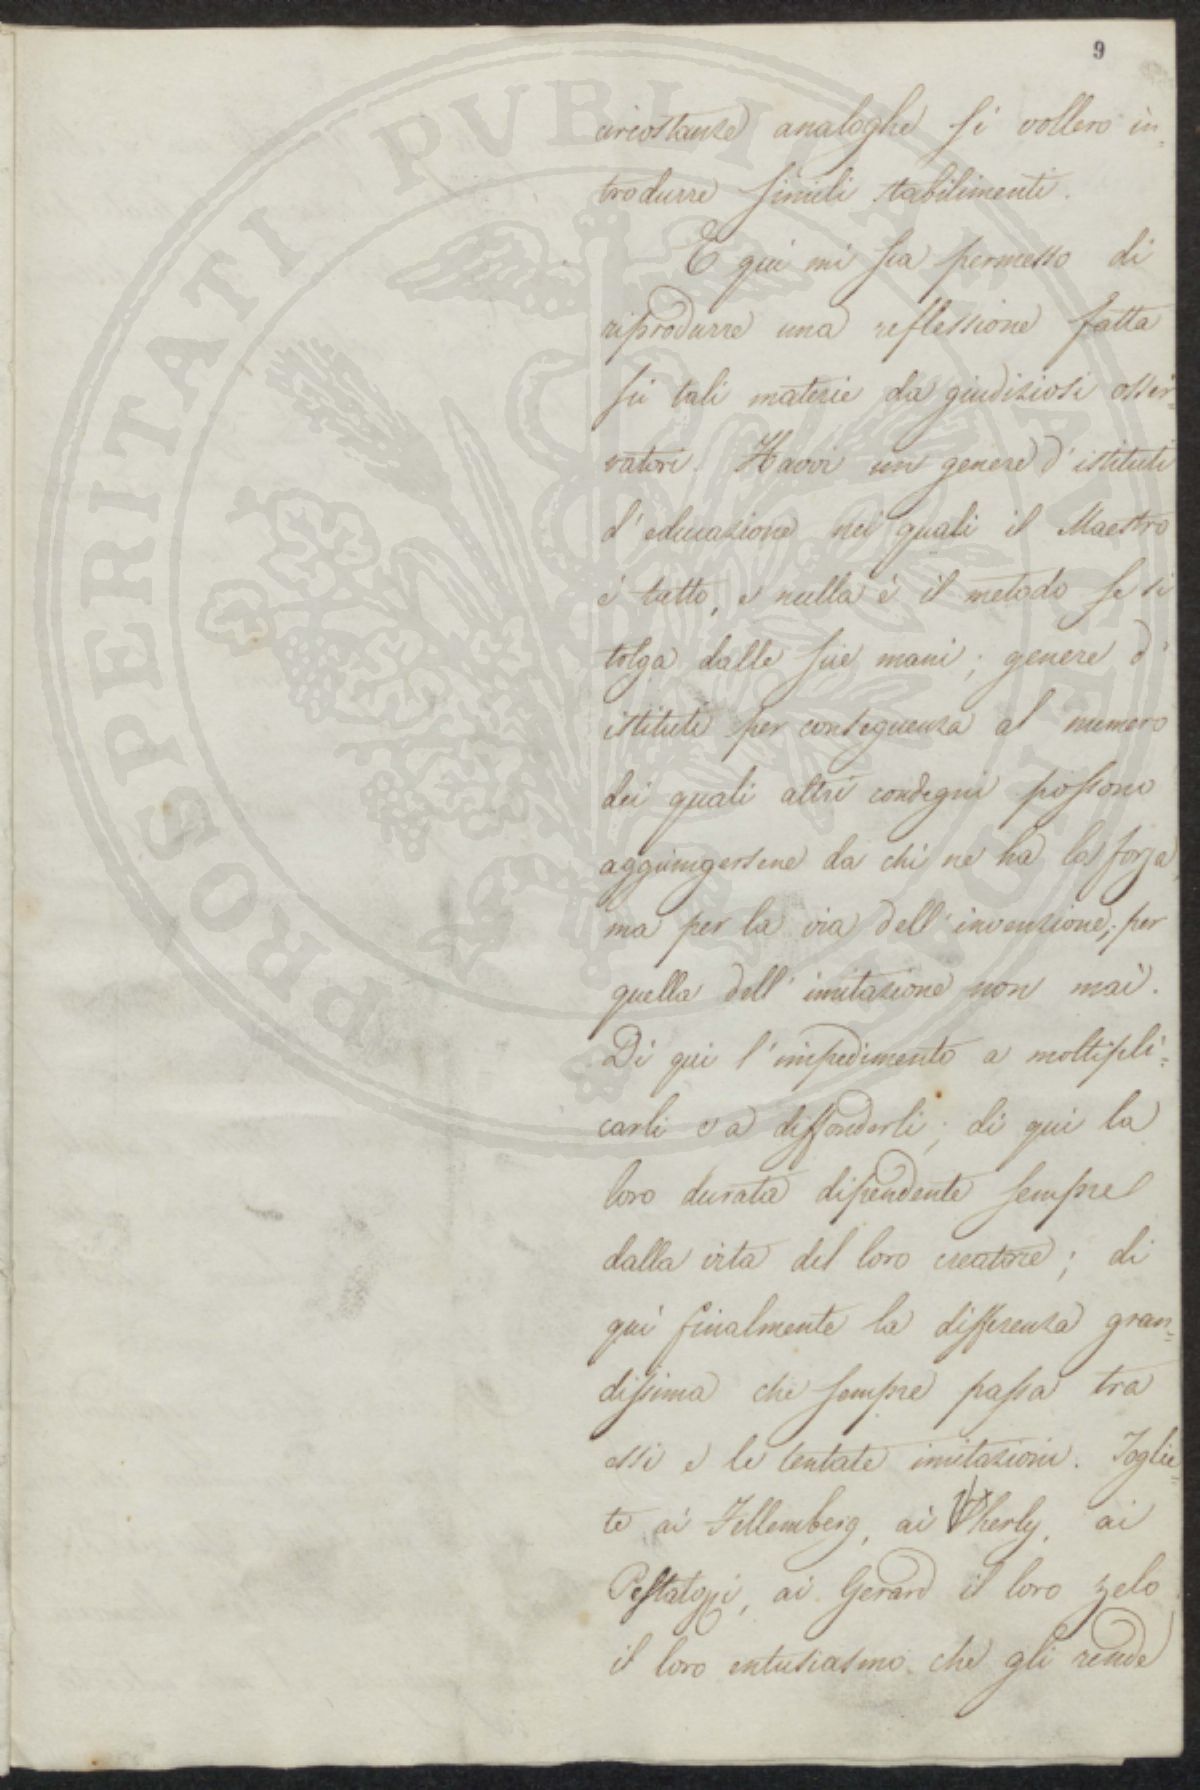 9
PROSPERITATI PVBLICAE AVGENDAE
circostanze analoghe si vollero in=
trodurre simili stabilimenti.
E qui mi sia permesso di
riprodurre una reflessione fatta
su tali materie da giudiziosi osser=
vatori. Havvi un genere d'istituti
d'educazione nei quali il Maestro
è tutto, e nulla è il metodo se si
tolga dalle sue mani; genere d'
istituti per conseguenza al numero
dei quali altri condegni possono
aggiungersene da chi ne ha la forza,
ma per la via dell'invenzione; per
quella dell'imitazione non mai.
Di qui l'impedimento a moltipli=
carli e a diffonderli; di qui la
loro durata dipendente sempre
dalla vita del loro creatore; di
qui finalmente la differenza gran=
dissima che sempre passa tra
essi e le tentate imitazioni. Toglie=
te ai Fellemberg, ai Wherly, ai
Pestalozzi, ai Gerard il loro zelo
il loro entusiasmo che gli rende